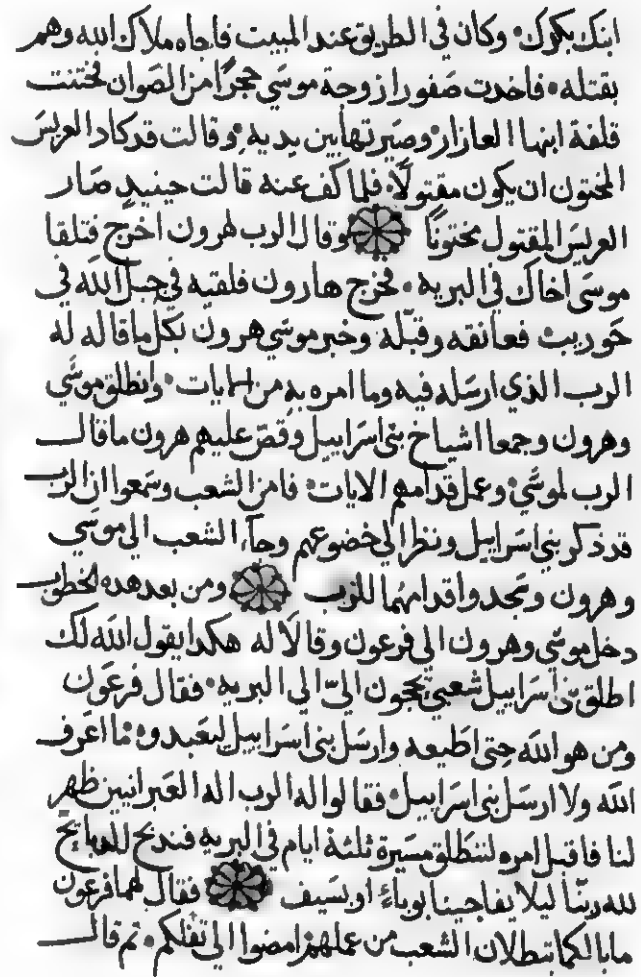 ابنك بكورك وكان في الطريق عند المبيت فاجاه ملاك الله وهم
بقتله فاخدت صفورا زوجة موسي حجرًا من الصوان فختنت
قلفة ابنها العازار وصيرتها بين يديه وقالت قد كاد العريس
المختون ان يكون مقتولًا فلما كف عنه قالت حينيدٍ صار
العريس المقتول مختونًا وقال الرب لهرون اخرج فتلقا
موسي اخاك في البريه فخرج هارون فلقيه في جبل الله في
حوريب فعانقه وقبّله وخبر موسي هرون بكل ما قاله له
الرب الذي ارسله فيه وما امره به من الايات وانطلق موسي
وهرون وجمعا اشياخ بني اسراييل وقصّ عليهم هرون ما قال
الرب لموسي وعمل قدامهم الايات فامن الشعب وسمعوا ان الرب
قد ذكر بني اسراييل ونظر الي خضوعهم وجاء الشعب الي موسي
وهرون وسجدوا قدامهما للرب ومن بعد هده الخطوب
دخل موسي وهرون الي فرعون وقالا له هكدا يقول الله لك
اطلق بني اسراييل شعبي يحجون اليّ الي البريه فقال فرعون
ومن هو الله حتي اطيعه وارسل بني اسراييل ليعبدوه ما اعرف
الله ولا ارسل بني اسراييل فقالوا له الرب اله العبرانيين ظهر
لنا فاقبل امره لننطلق مسيرة ثلثة ايام في البريه فندبح للدبايح
لله ربّنا ليلا يفاجينا بوباءٍ او بسيف فقال لهما فرعون
ما بالكما تبطلان الشعب من عملهم امضوا الي ثقلكم ثم قال